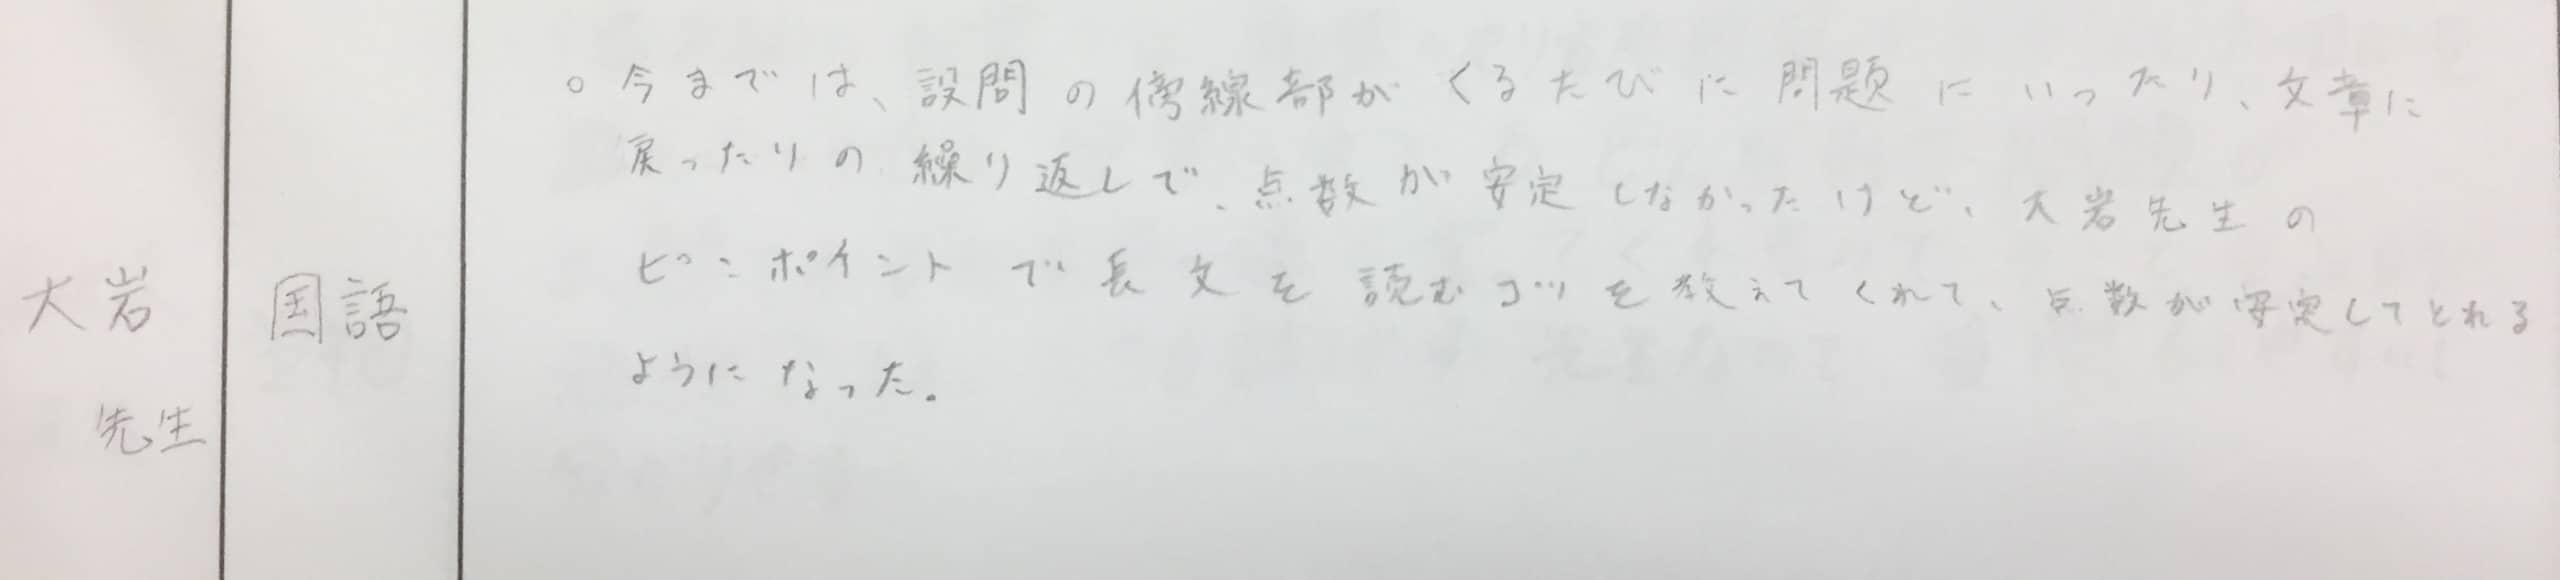 大岩
先生
国語
○今までは、設問の傍線部がくるたびに問題にいったり、文章に
戻ったりの繰り返しで、点数が安定しなかったけど、大岩先生の
ピンポイントで長文を読むコツを教えてくれて、点数が安定してとれる
ようになった。